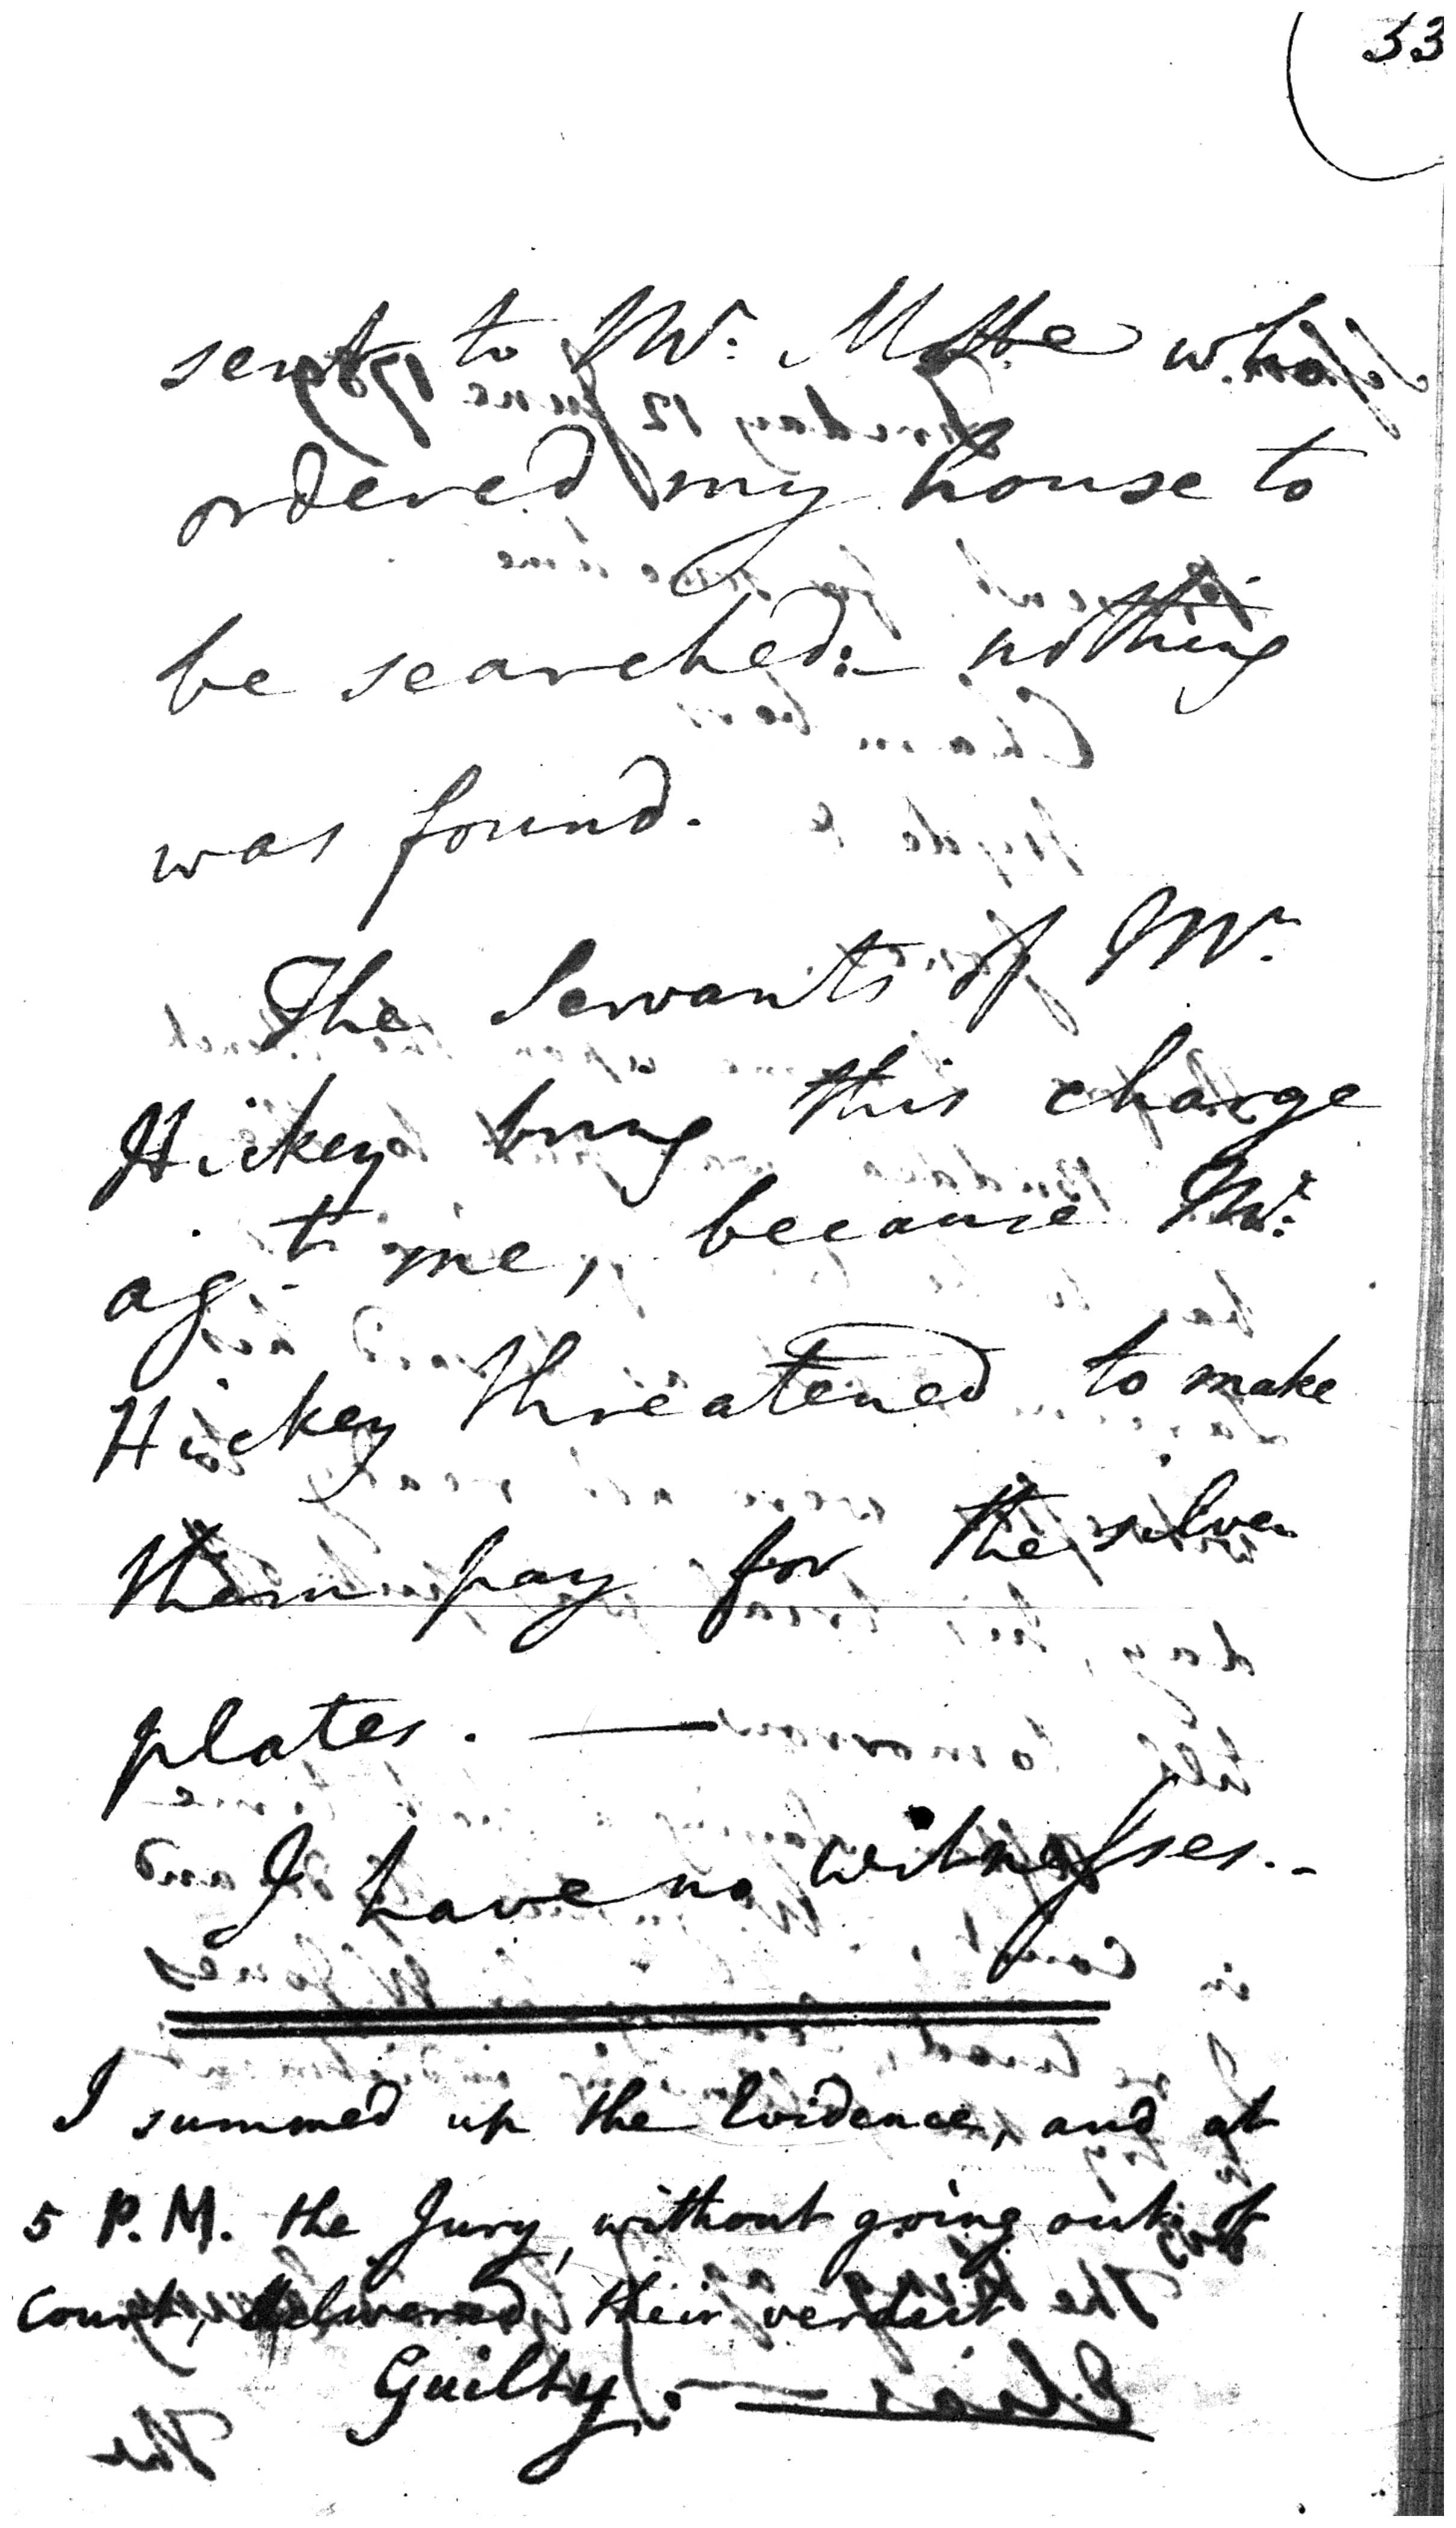 33
sent to Mr. Motte who
ordered my house to
be searched: nothing
was found.
The Servants of Mr.
Hickey bring this charge
agt. me, because Mr.
Hickey threatened to make
them pay for the silver
plates. —
I have no witnesses.-
I summed up the Evidence, and at
5 P.M. the Jury, without going out of
Court, delivered their verdict
Guilty. —